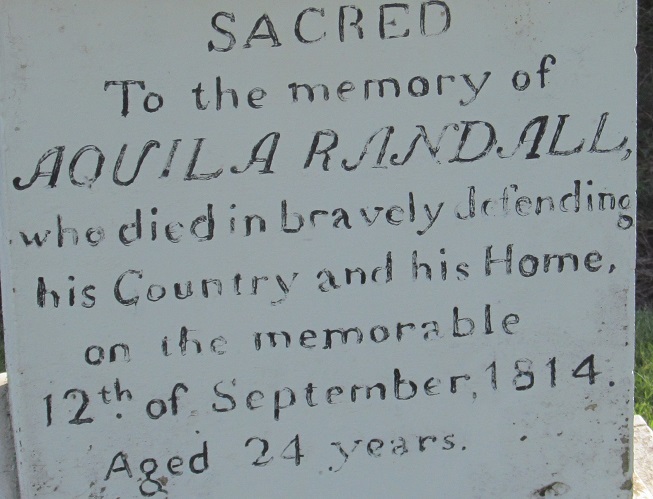 SACRED
To the memory of
AQUILA RANDALL,
who died in bravely defending
his Country and his Home,
on the memorable
12th. of September, 1814.
Aged 24 years.